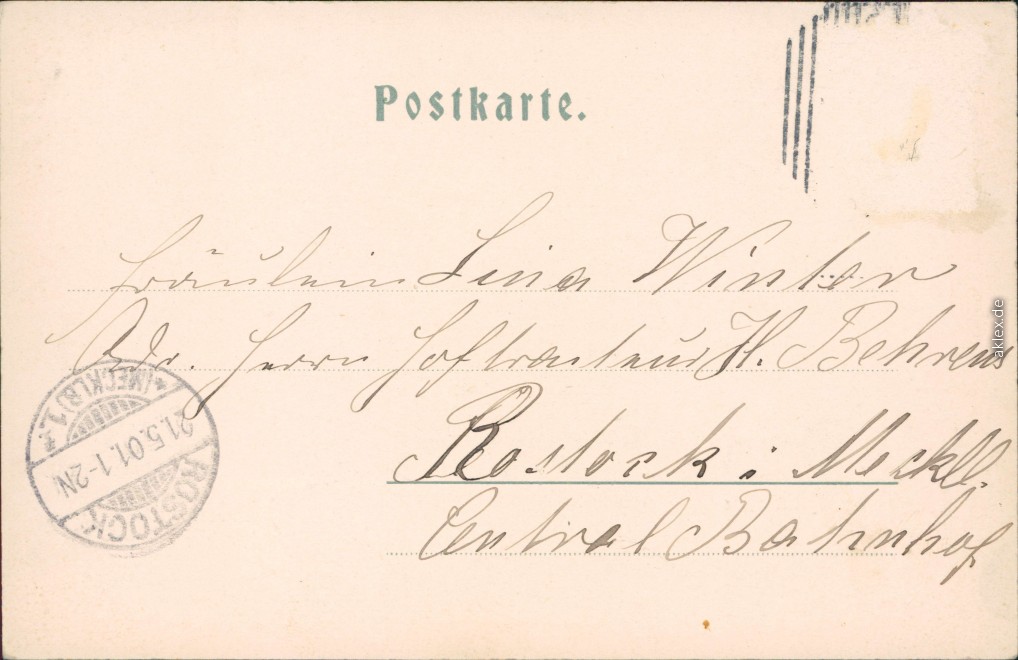 Postkarte.
Fräulein Lina Winter
Adr. Herrn Hoftraiteur H. Behrens
Rostock i Meckl.
Central Bahnhof
ROSTOCK
21.5.01.1-2N
(MECKLB) 1.
aklex.de